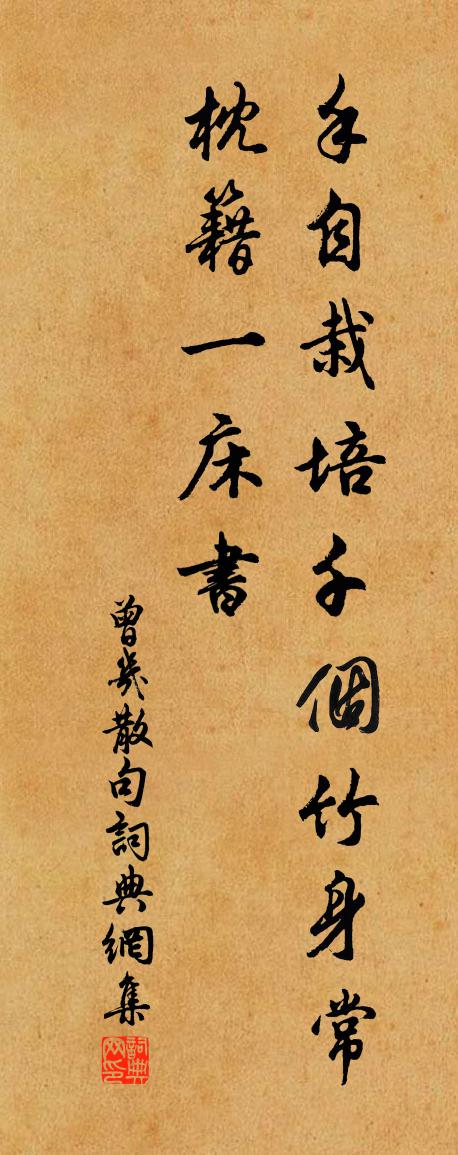 手自栽培千個竹身常
枕籍一床書
曾幾散句詞典網集
詞典
网印